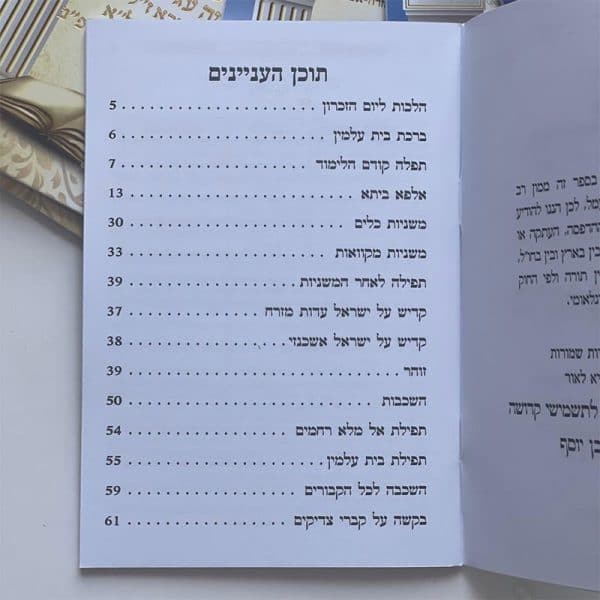 תוכן העניינים
הלכות ליום הזכרון ..................... 5
ברכת בית עלמין ..................... 6
תפלה קודם הלימוד ..................... 7
אלפא ביתא ..................... 13
משניות כלים ..................... 30
משניות מקוואות ..................... 33
תפילה לאחר המשניות ..................... 39
קדיש על ישראל עדות מזרח ..................... 37
קדיש על ישראל אשכנזי ..................... 38
זוהר ..................... 39
השכבות ..................... 50
תפילת אל מלא רחמים ..................... 54
תפילת בית עלמין ..................... 55
השכבה לכל הקבורים ..................... 59
בקשה על קברי צדיקים ..................... 61
בספר זה ממון רב
לכן הננו להודיע
הדפסה, העתקה או
בין בארץ ובין בחו"ל,
תורה ולפי החוק
שמורות
לאור
לתשמישי קדושה
יוסף